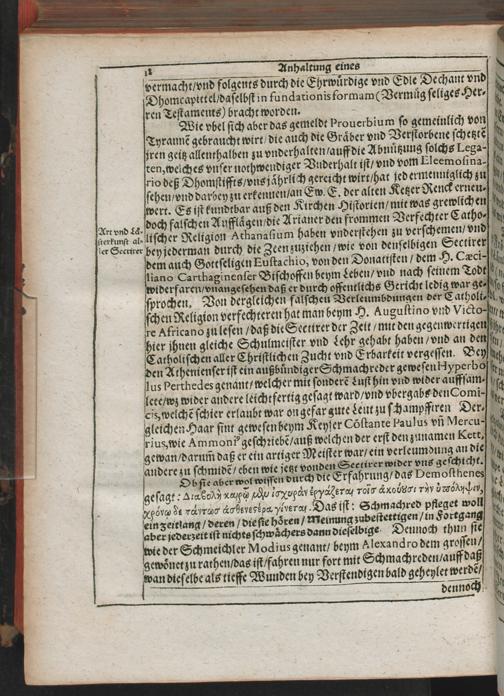 12 Anhaltung eines
vermacht/vnd folgents durch die Ehrwürdige vnd Edle Dechant vnd
Dhomcapittel/daselbst in fundationis formam (Vermüg seliges Her-
ren Testaments) bracht worden.
Wie vbel sich aber das gemeldt Prouerbium so gemeinlich von
Tyrannē gebraucht wirt/die auch die Gräber vnd Verstorbene schetzē
jren geitz allenthalben zu vnderhalten/auff die Abnützung solchs Lega-
ten, welches vnser nothwendiger Vnderhalt ist/vnd vom Eleemosina-
rio deß Dhomstiffts/vns jährlich gereicht wirt/hat jedermenniglich zu
sehen/vnd darbey zu erkennen/an Ew. E. der alten Ketzer Renck erneu-
wert. Es ist kundtbar auß den Kirchen Historien/mit was grewlichen
doch falschen Aufflägen/die Arianer den frommen Verfechter Catho-
lischer Religion Athanasium haben vnderstehen zu verschemen/vnd
Art vnd Lä-
sterkunst al-
ler Sectirer
bey jederman durch die Zeen zuziehen/wie von denselbigen Sectirer
dem auch Gottseligen Eustachio, von den Donatisten/dem H. Cæci-
liano Carthaginenser Bischoffen beym Leben/vnd nach seinem Todt
widerfaren/vnangesehen daß er durch offentlichs Gericht ledig war ge-
sprochen. Von dergleichen falschen Verleumbdungen der Catholi-
schen Religion verfechteren hat man beym H. Augustino vnd Victo-
re Africano zu lesen/daß die Sectirer der Zeit/mit den gegenwertigen
hier jhnen gleiche Schulmeister vnd Lehr gehabt haben/vnd an den
Catholischen aller Christlichen Zucht vnd Erbarkeit vergessen. Bey
den Athenienser ist ein außbündiger Schmachreder gewesen Hyperbo
lus Perthedes genant/welcher mit sonderē Lust hin vnd wider auffsam-
lete/wz wider andere leichtfertig gesagt ward/vnd vbergabs den Comi-
cis, welchē schier erlaubt war on gefar gute Leut zu schampffiren Der-
gleichen Haar sint gewesen beym Keyser Cōstante Paulus vn̄ Mercu-
rius, wie Ammoni⁹ geschriebē/auß welchen der erst den zunamen Kett,
gewan/darum̄ daß er ein artiger Meister war/ein verleumdung an die
andere zu schmidē/eben wie jetz vonden Sectirer wider vns geschicht.
Ob sie aber wol wissen durch die Erfahrung/das Demosthenes
gesagt: Διαβολὴ καιρῷ μὲν ἰσχυρὰν ἐργάζεται τοῖς ἀκούουσι τὴν ὑπόληψιν,
χρόνῳ δὲ πάντως ἀσθενεστέρα γίνεται. Das ist: Schmachred pfleget woll
ein zeitlang/deren/die sie hören/Meinung zubestettigen/in Fortgang
aber jederzeit ist nichts schwächers dann dieselbige. Dennoch thun sie
wie der Schmeichler Modius genant/beym Alexandro dem grossen/
gewönet zu rathen/das ist/fahren nur fort mit Schmachreden/auff daß
wan dieselbe als tieffe Wunden bey Verstendigen bald geheylet werdē/
dennoch